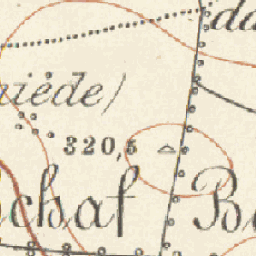 da
iede)
320,5
chaf B